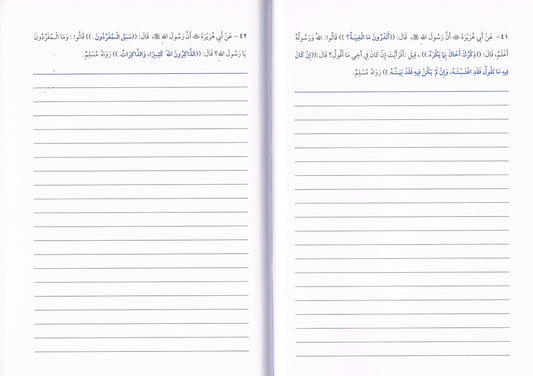 ٤١ - عَنْ أَبِي هُرَيْرَةَ ﷺ أَنَّ رَسُولَ اللهِ ﷺ، قَالَ: ((أَتَدْرُونَ مَا الْغِيبَةُ؟ )) قَالُوا: اللهُ وَرَسُولُهُ
أَعْلَمُ، قَالَ: ((ذِكْرُكَ أَخَاكَ بِمَا يَكْرَهُ، )) ، قِيلَ :أَفَرَأَيْتَ إِنْ كَانَ فِي أَخِي مَا أَقُولُ؟ قَالَ:((إِنْ كَانَ
فِيهِ مَا تَقُولُ فَقَدِ اغْتَبْتَهُ، وَإِنْ لَمْ يَكُنْ فِيهِ فَقَدْ بَهَتَّهُ. )) رَوَاهُ مُسْلِمٌ.
٤٢ - عَنْ أَبِي هُرَيْرَةَ أَنَّ رَسُولَ اللهِ ﷺ، قَالَ: ((سَبَقَ الْمُفَرِّدُونَ. )) قَالُوا : وَمَا الْمُفَرِّدُونَ
يَا رَسُولَ اللهِ؟ قَالَ: ((الذَّاكِرُونَ اللهَ كَثِيرًا، وَالذَّاكِرَاتُ. )) رَوَاهُ مُسْلِمٌ.